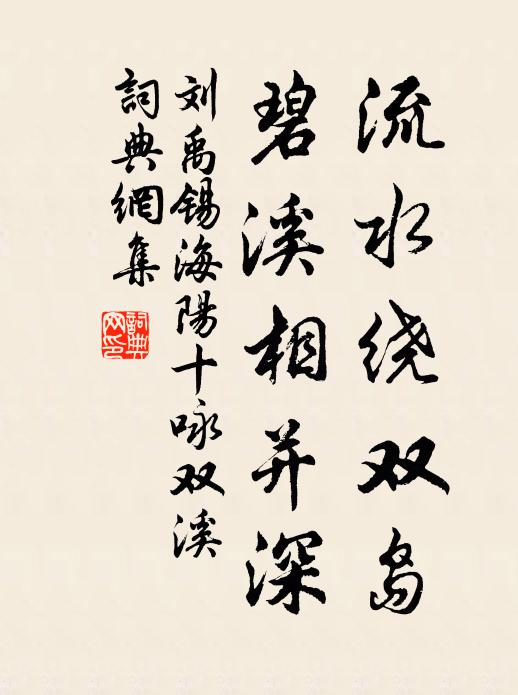 流水绕双岛
碧溪相并深
刘禹锡海陽十咏双溪
詞典網集
詞典网印